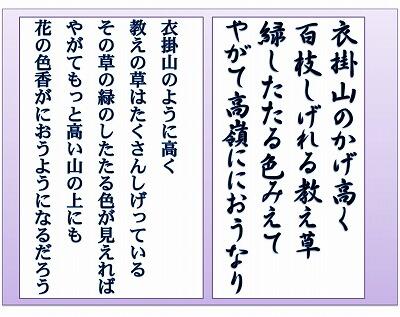 衣掛山のかげ高く
百枝しげれる教え草
緑したたる色みえて
やがて高嶺ににおうなり
衣掛山のように高く
教えの草はたくさんしげっている
その草の緑のしたたる色が見えれば
やがてもっと高い山の上にも
花の色香がにおうようになるだろう